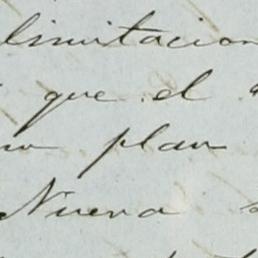 limitacion
que el
plan
Nueva